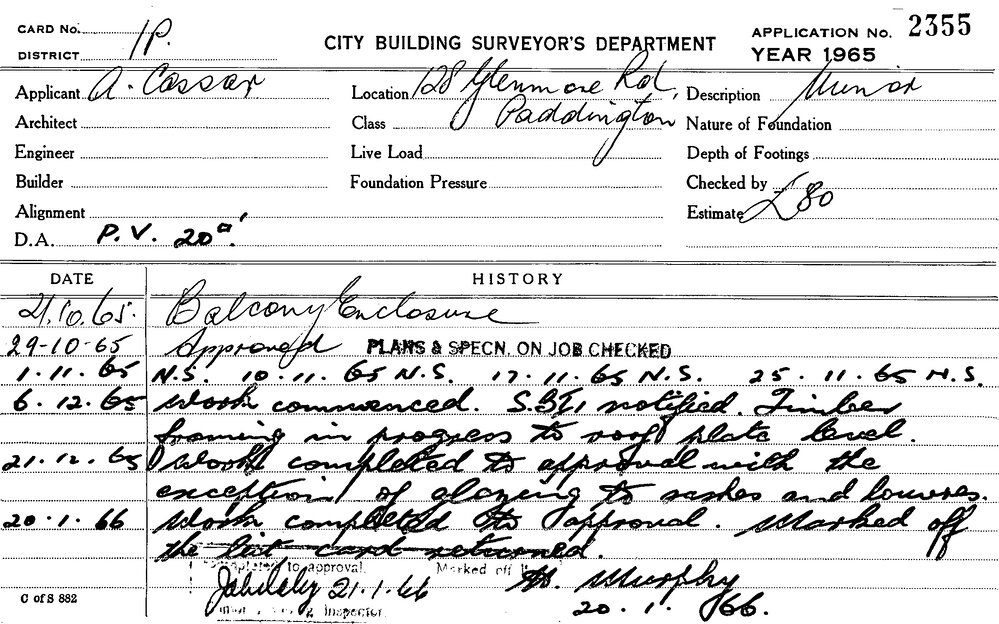 CARD No. 1P.
DISTRICT
CITY BUILDING SURVEYOR'S DEPARTMENT
APPLICATION No. 2355
YEAR 1965
Applicant A. Cassar
Location 128 Glenmore Rd,
Paddington
Description Minor
Architect
Class
Nature of Foundation
Engineer
Live Load
Depth of Footings
Builder
Foundation Pressure
Checked by
Alignment
Estimate £80
D.A. P.V. 20a'.
DATE HISTORY
21.10.65. Balcony Enclosure
29-10-65 Approved PLANS & SPECN. ON JOB CHECKED
1.11.65 N.S. 10.11.65 N.S. 17.11.65 N.S. 25.11.65 N.S.
6.12.65 Work commenced. notified. Timber
framing in progress to roof plate level.
21.12.65 Work completed to approval with the
exception of glazing to sashes and louvres.
20.1.66 Work completed to approval. Marked off
the list card returned.
Completed to approval. Marked off
21.1.66 Murphy
Inspector. 20.1.66.
C of S 882